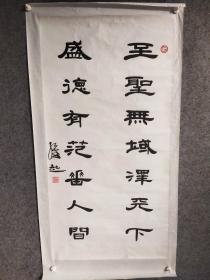 至聖無域澤天下
盛德有范垂人間